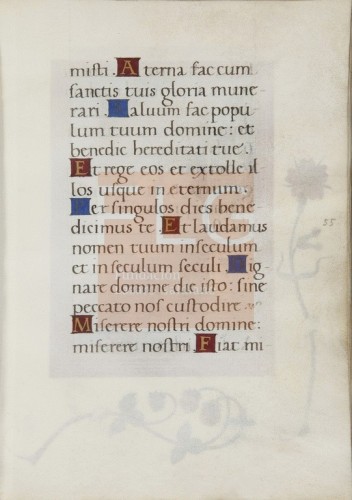 misti. Aterna fac cum
sanctis tuis gloria mune
rari. Saluum fac popu
lum tuum domine: et
benedic hereditati tue.
Et rege eos et extolle il
los usque in eternum.
Per singulos dies bene
dicimus te. Et laudamus
nomen tuum in seculum
et in seculum seculi. Dig
nare domine die isto: sine
peccato nos custodire.
Miserere nostri domine:
miserere nostri. Fiat mi
55